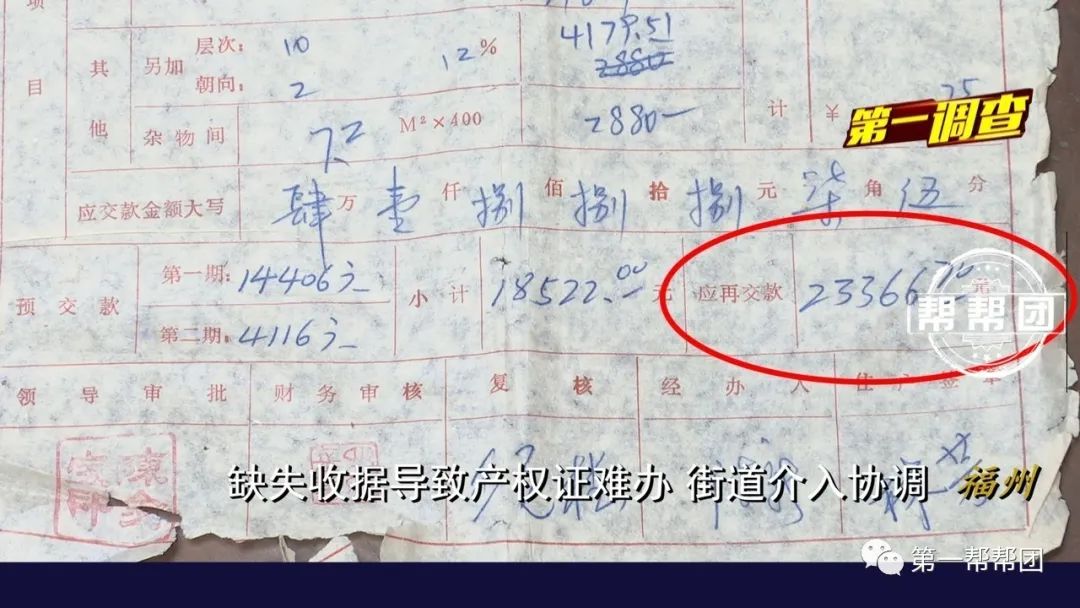 项
目
其
他
另加
层次: 10
朝向: 2
12 %
4179.51
2880
杂物间
7.2
M²×400
2880—
计
¥
第一调查
应交款金额大写
肆万壹仟捌佰捌拾捌元柒角伍分
预交款
第一期: 14406元
第二期: 4116元
小计
18522.00元
应再交款
23366
元
帮帮团
领导审批
财务审核
复核
经办人
住户签章
缺失收据导致产权证难办 街道介入协调
福州
第一帮帮团